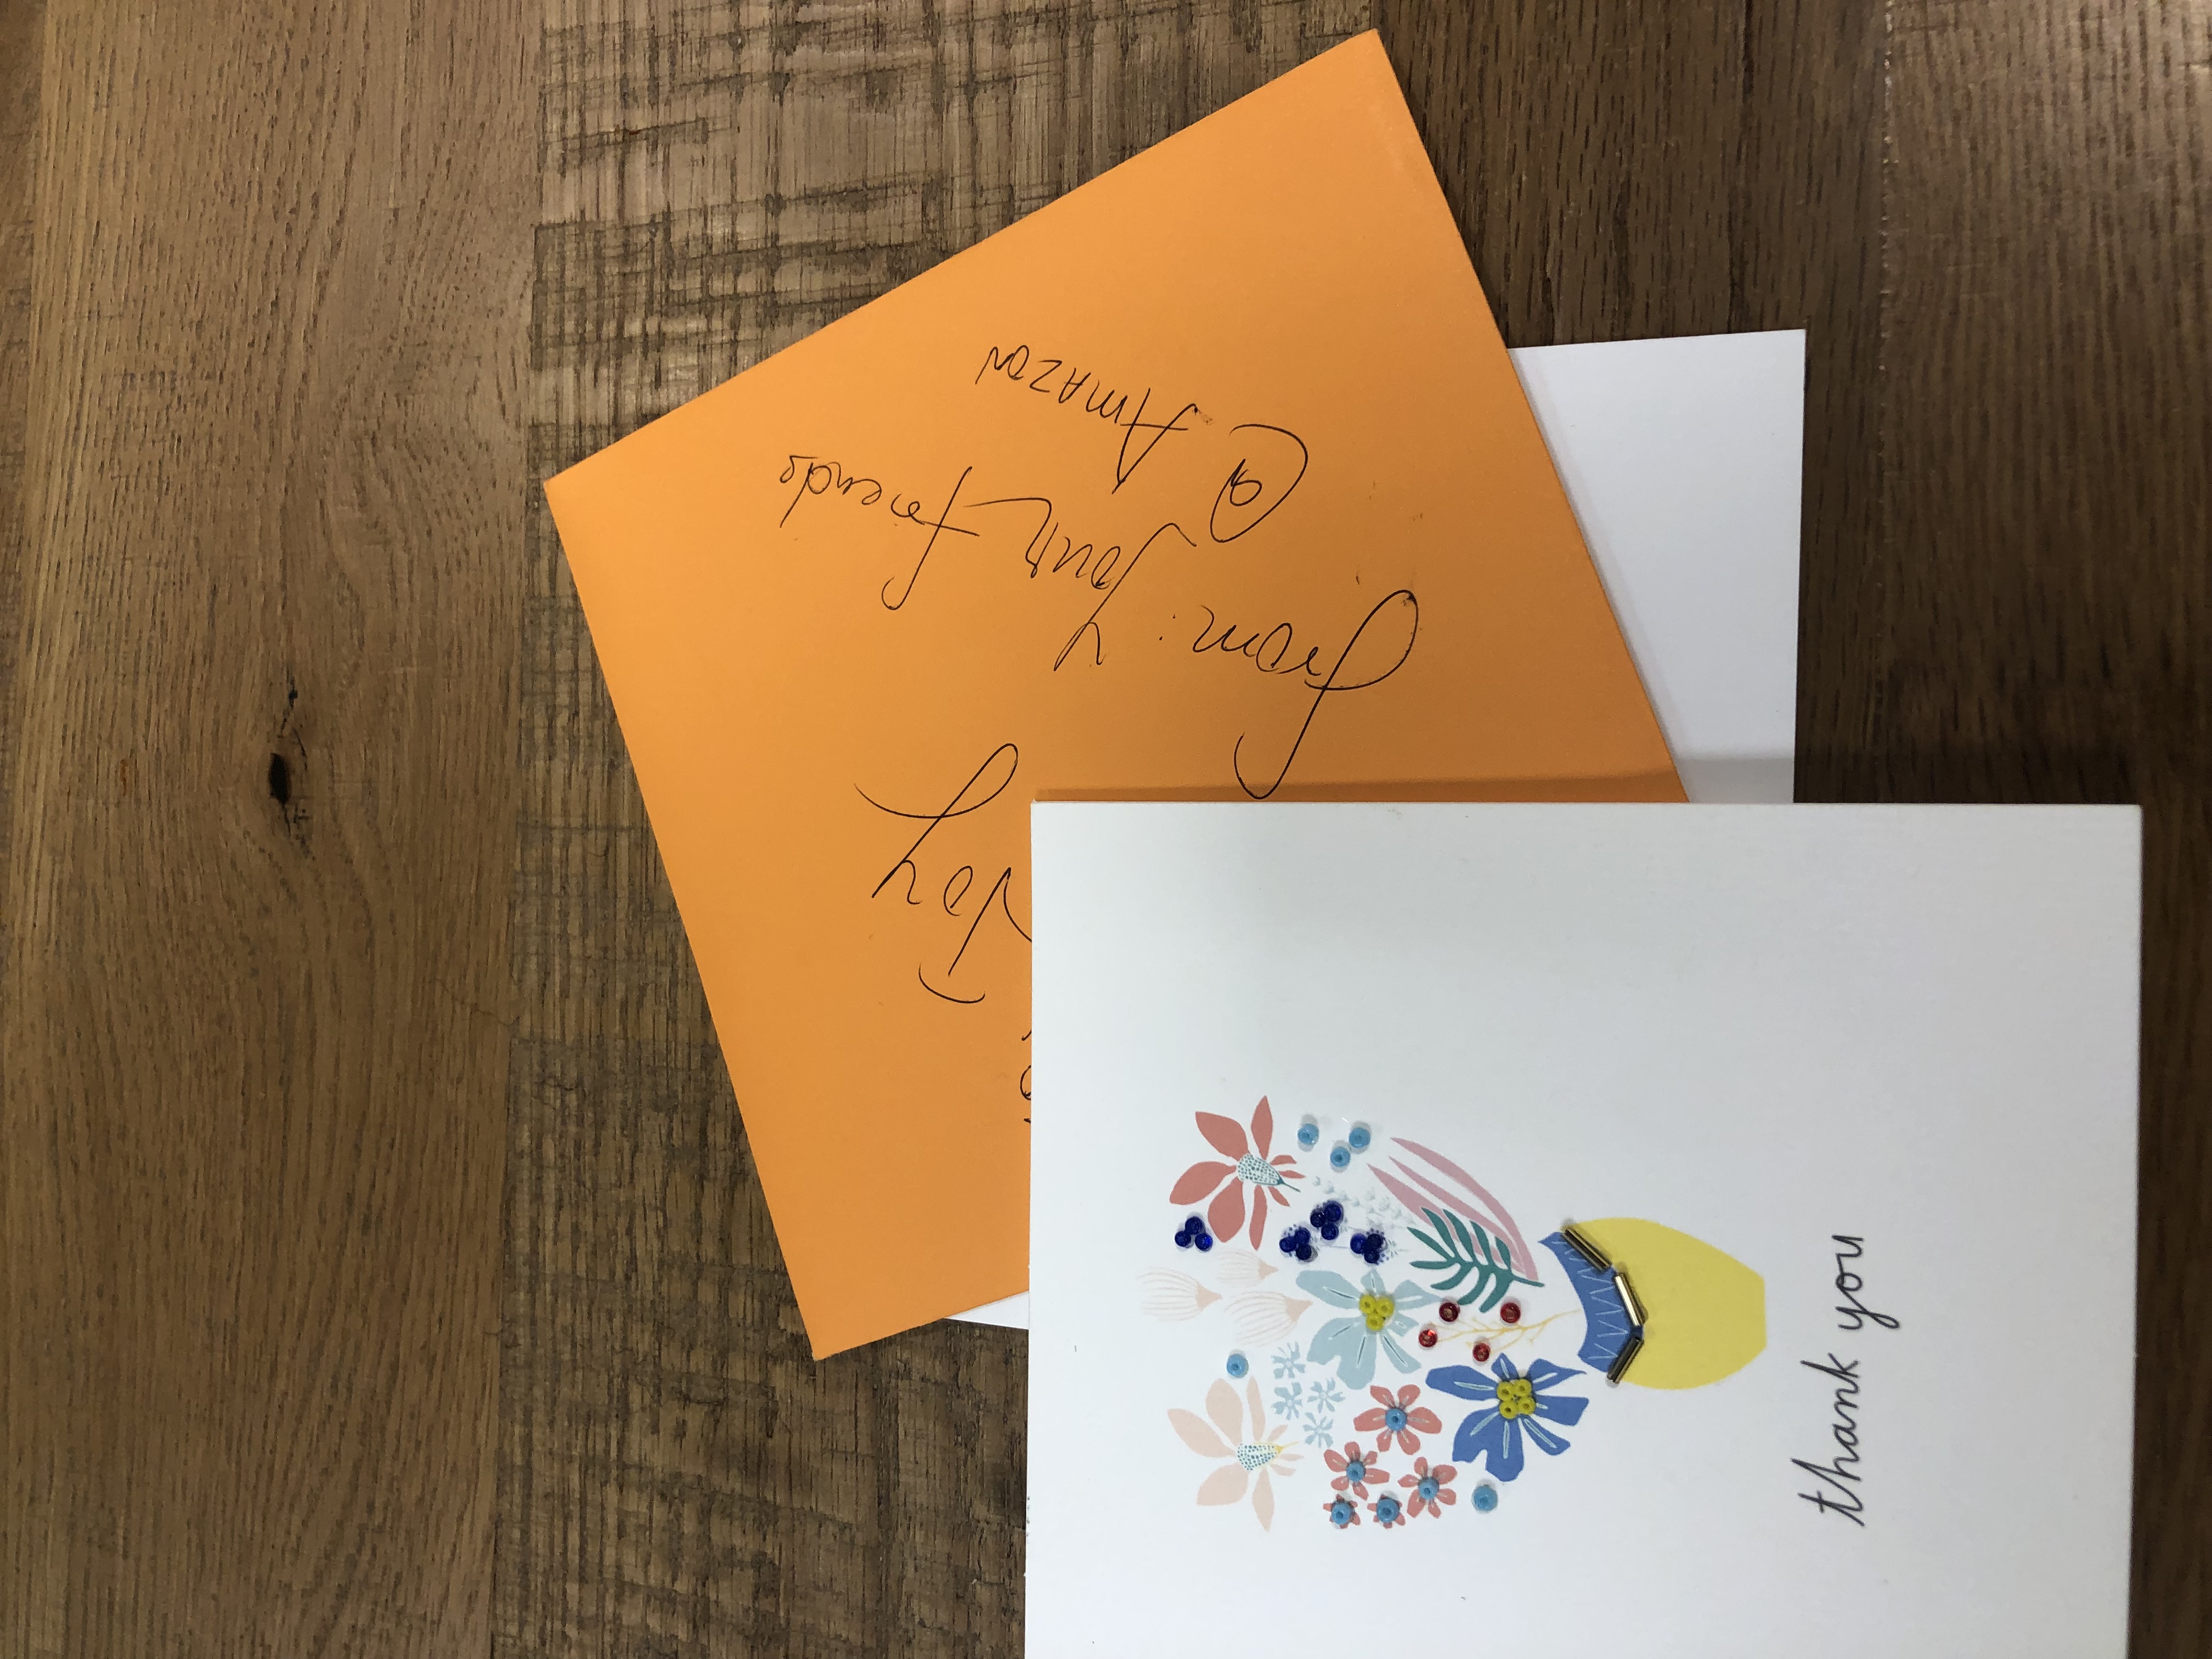 Joy
from: Your friends
@ AMAZON
thank you